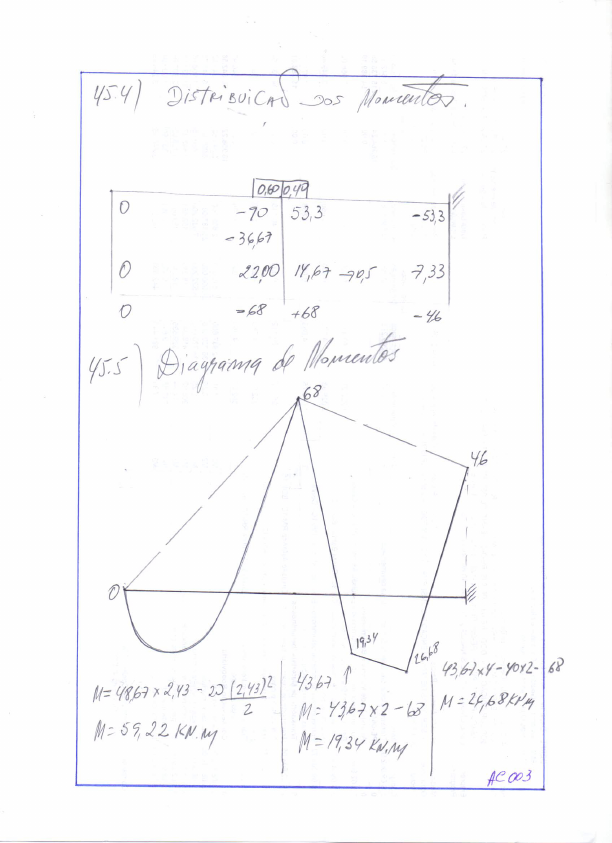 45.4) DISTRIBUICAO DOS MOMENTOS.
0,60 0,40
0 -90 53,3 -53,3
-36,67
0 22,00 14,67 →0,5 7,33
0 -68 +68 -46
45.5) Diagrama de Momentos
68
46
0
19,34
26,68
M= 48,67 x 2,43 - 20 (2,43)²
2
M= 59,22 KN.m
43,67 ↑
M= 43,67 x 2 - 68
M= 19,34 KN.m
43,67x4-40x2-68
M= 26,68 KN.m
AC 003